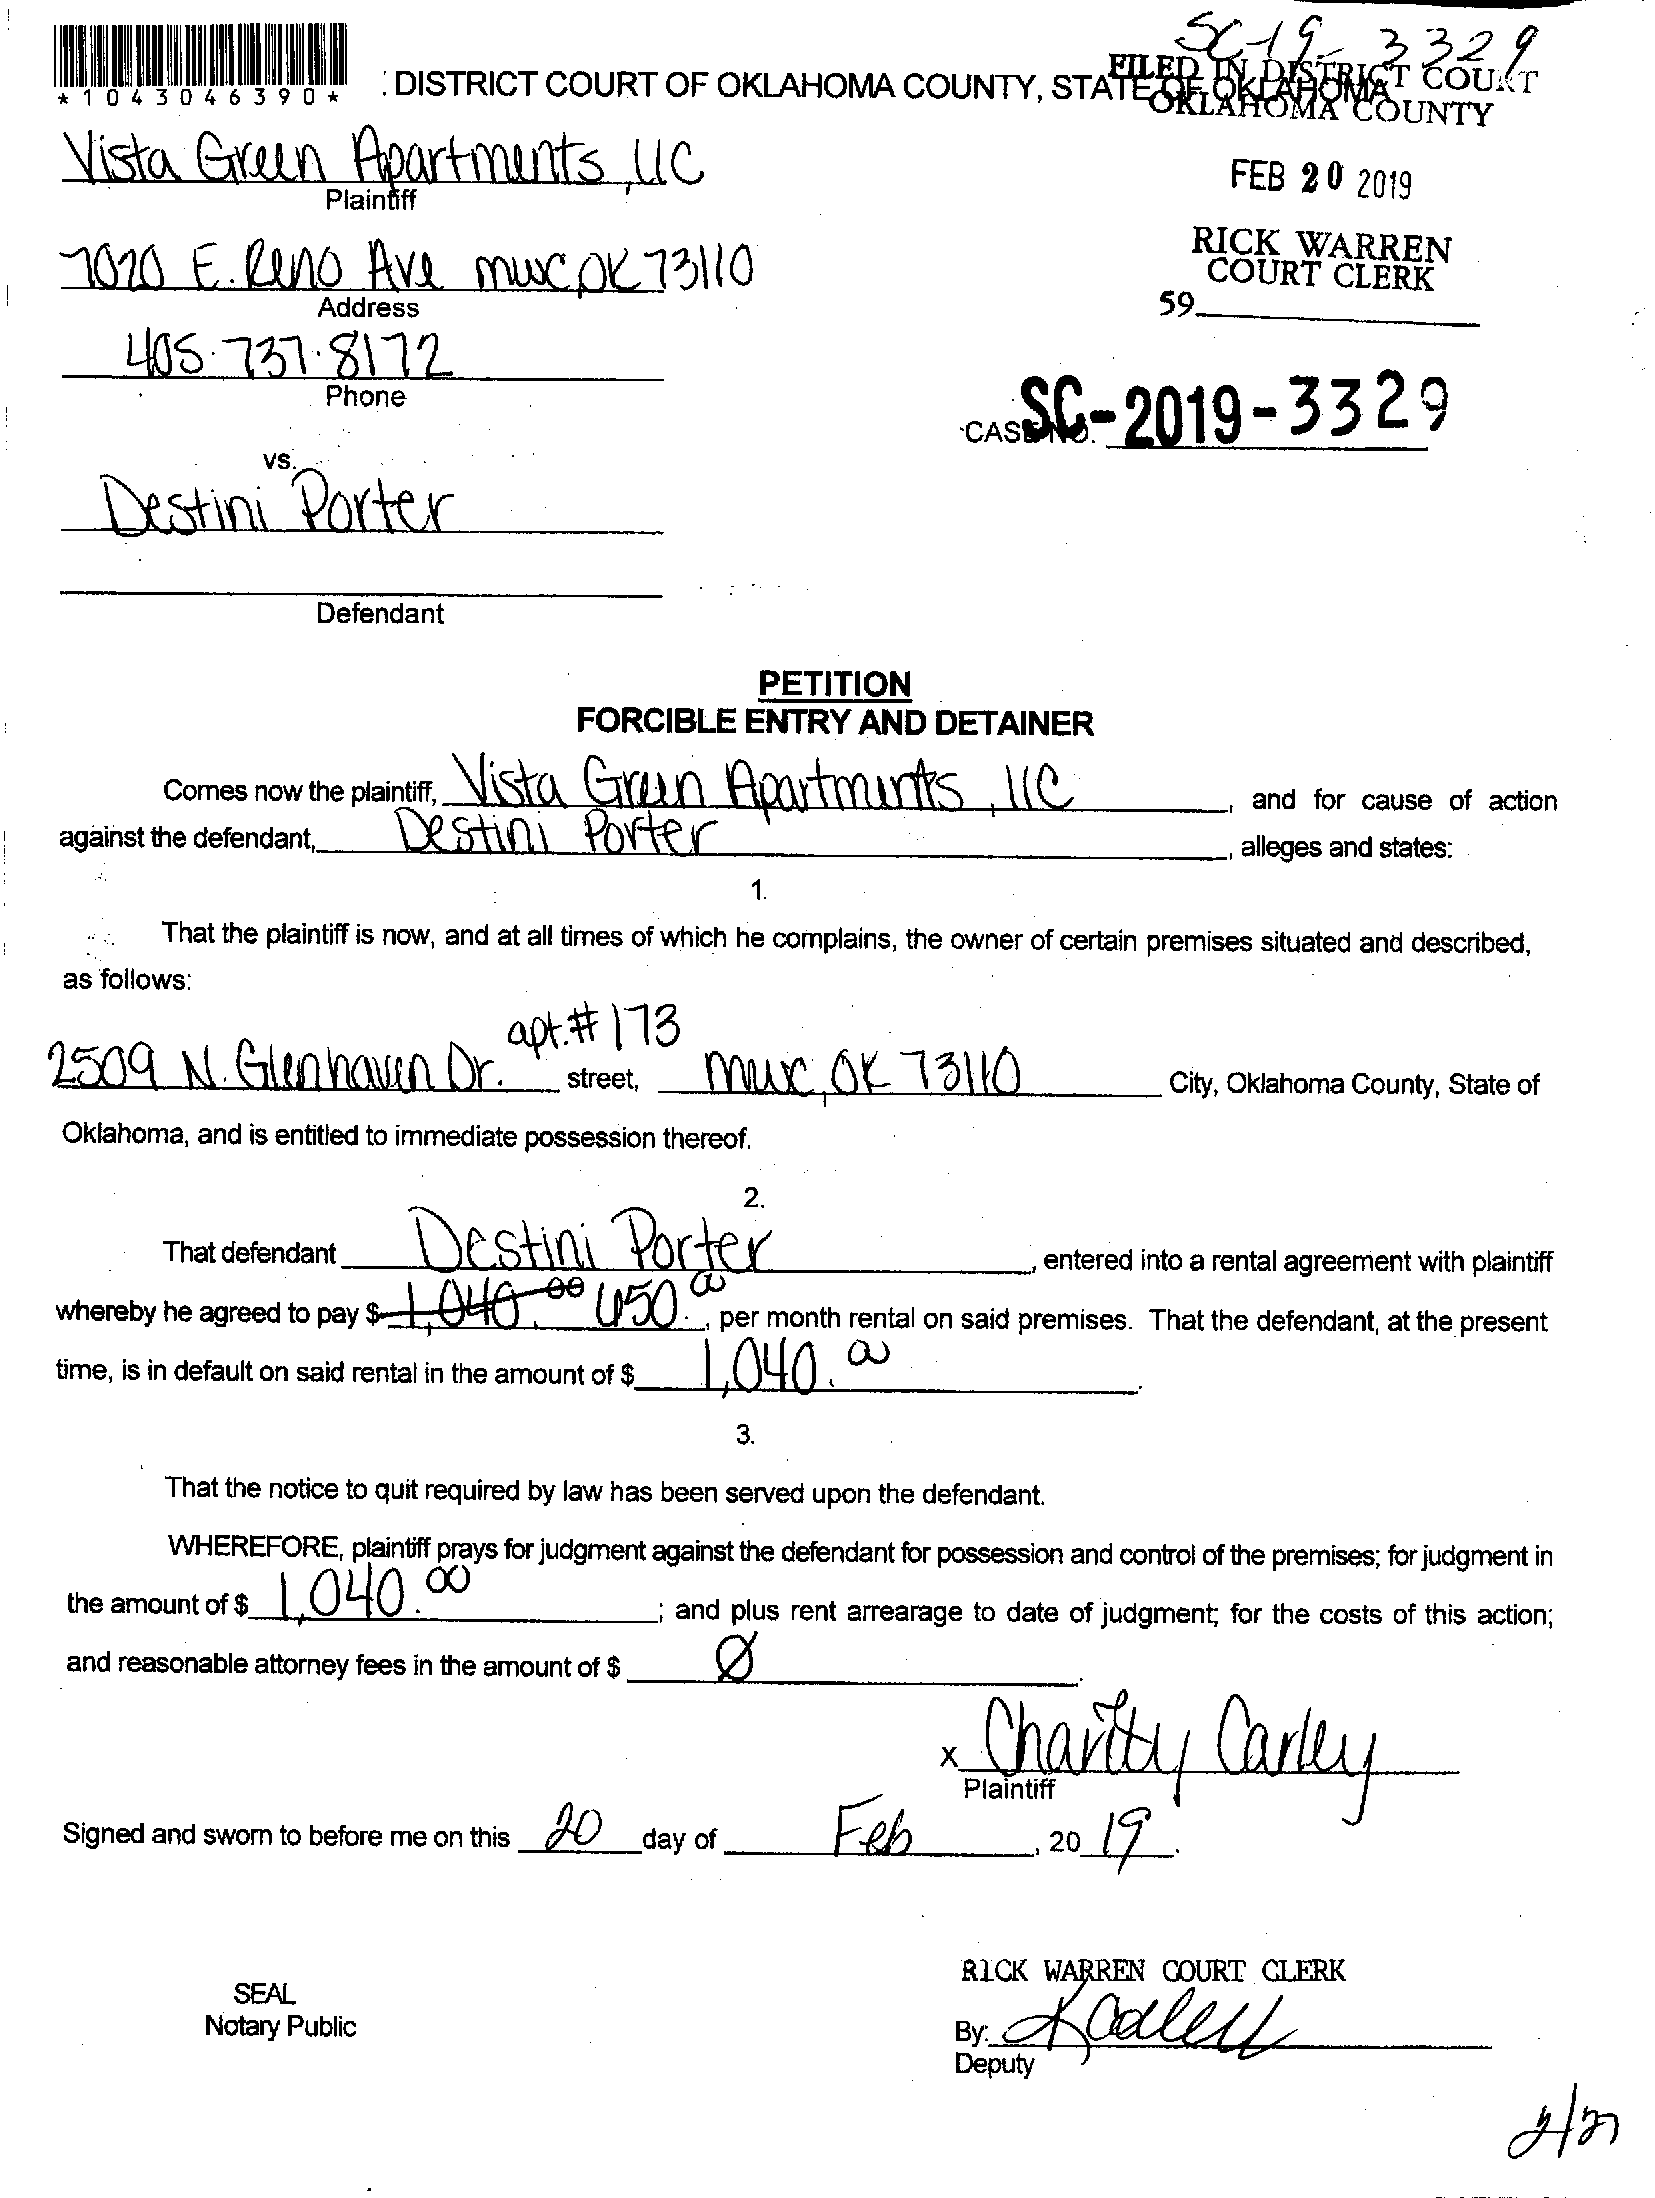 SC-19-3329
*1043046390*
DISTRICT COURT OF OKLAHOMA COUNTY, STATE OF OKLAHOMA
FILED IN DISTRICT COURT
OKLAHOMA COUNTY
Vista Green Apartments, LLC
Plaintiff
FEB 20 2019
RICK WARREN
COURT CLERK
7020 E. Reno Ave MWC OK 73110
Address
59
405.737.8172
Phone
CASE NO. SC-2019-3329
vs.
Destini Porter
Defendant
PETITION
FORCIBLE ENTRY AND DETAINER
Comes now the plaintiff, Vista Green Apartments, LLC, and for cause of action
against the defendant, Destini Porter, alleges and states:
1.
That the plaintiff is now, and at all times of which he complains, the owner of certain premises situated and described,
as follows:
apt.# 173
2509 N. Glenhaven Dr. street, MWC, OK 73110 City, Oklahoma County, State of
Oklahoma, and is entitled to immediate possession thereof.
2.
That defendant Destini Porter, entered into a rental agreement with plaintiff
whereby he agreed to pay $ 1,040.00 650.00, per month rental on said premises. That the defendant, at the present
time, is in default on said rental in the amount of $ 1,040.00.
3.
That the notice to quit required by law has been served upon the defendant.
WHEREFORE, plaintiff prays for judgment against the defendant for possession and control of the premises; for judgment in
the amount of $ 1,040.00; and plus rent arrearage to date of judgment; for the costs of this action;
and reasonable attorney fees in the amount of $ Ø.
x Charity Carley
Plaintiff
Signed and sworn to before me on this 20 day of Feb, 2019.
RICK WARREN COURT CLERK
SEAL
Notary Public
By:
Deputy
2/27